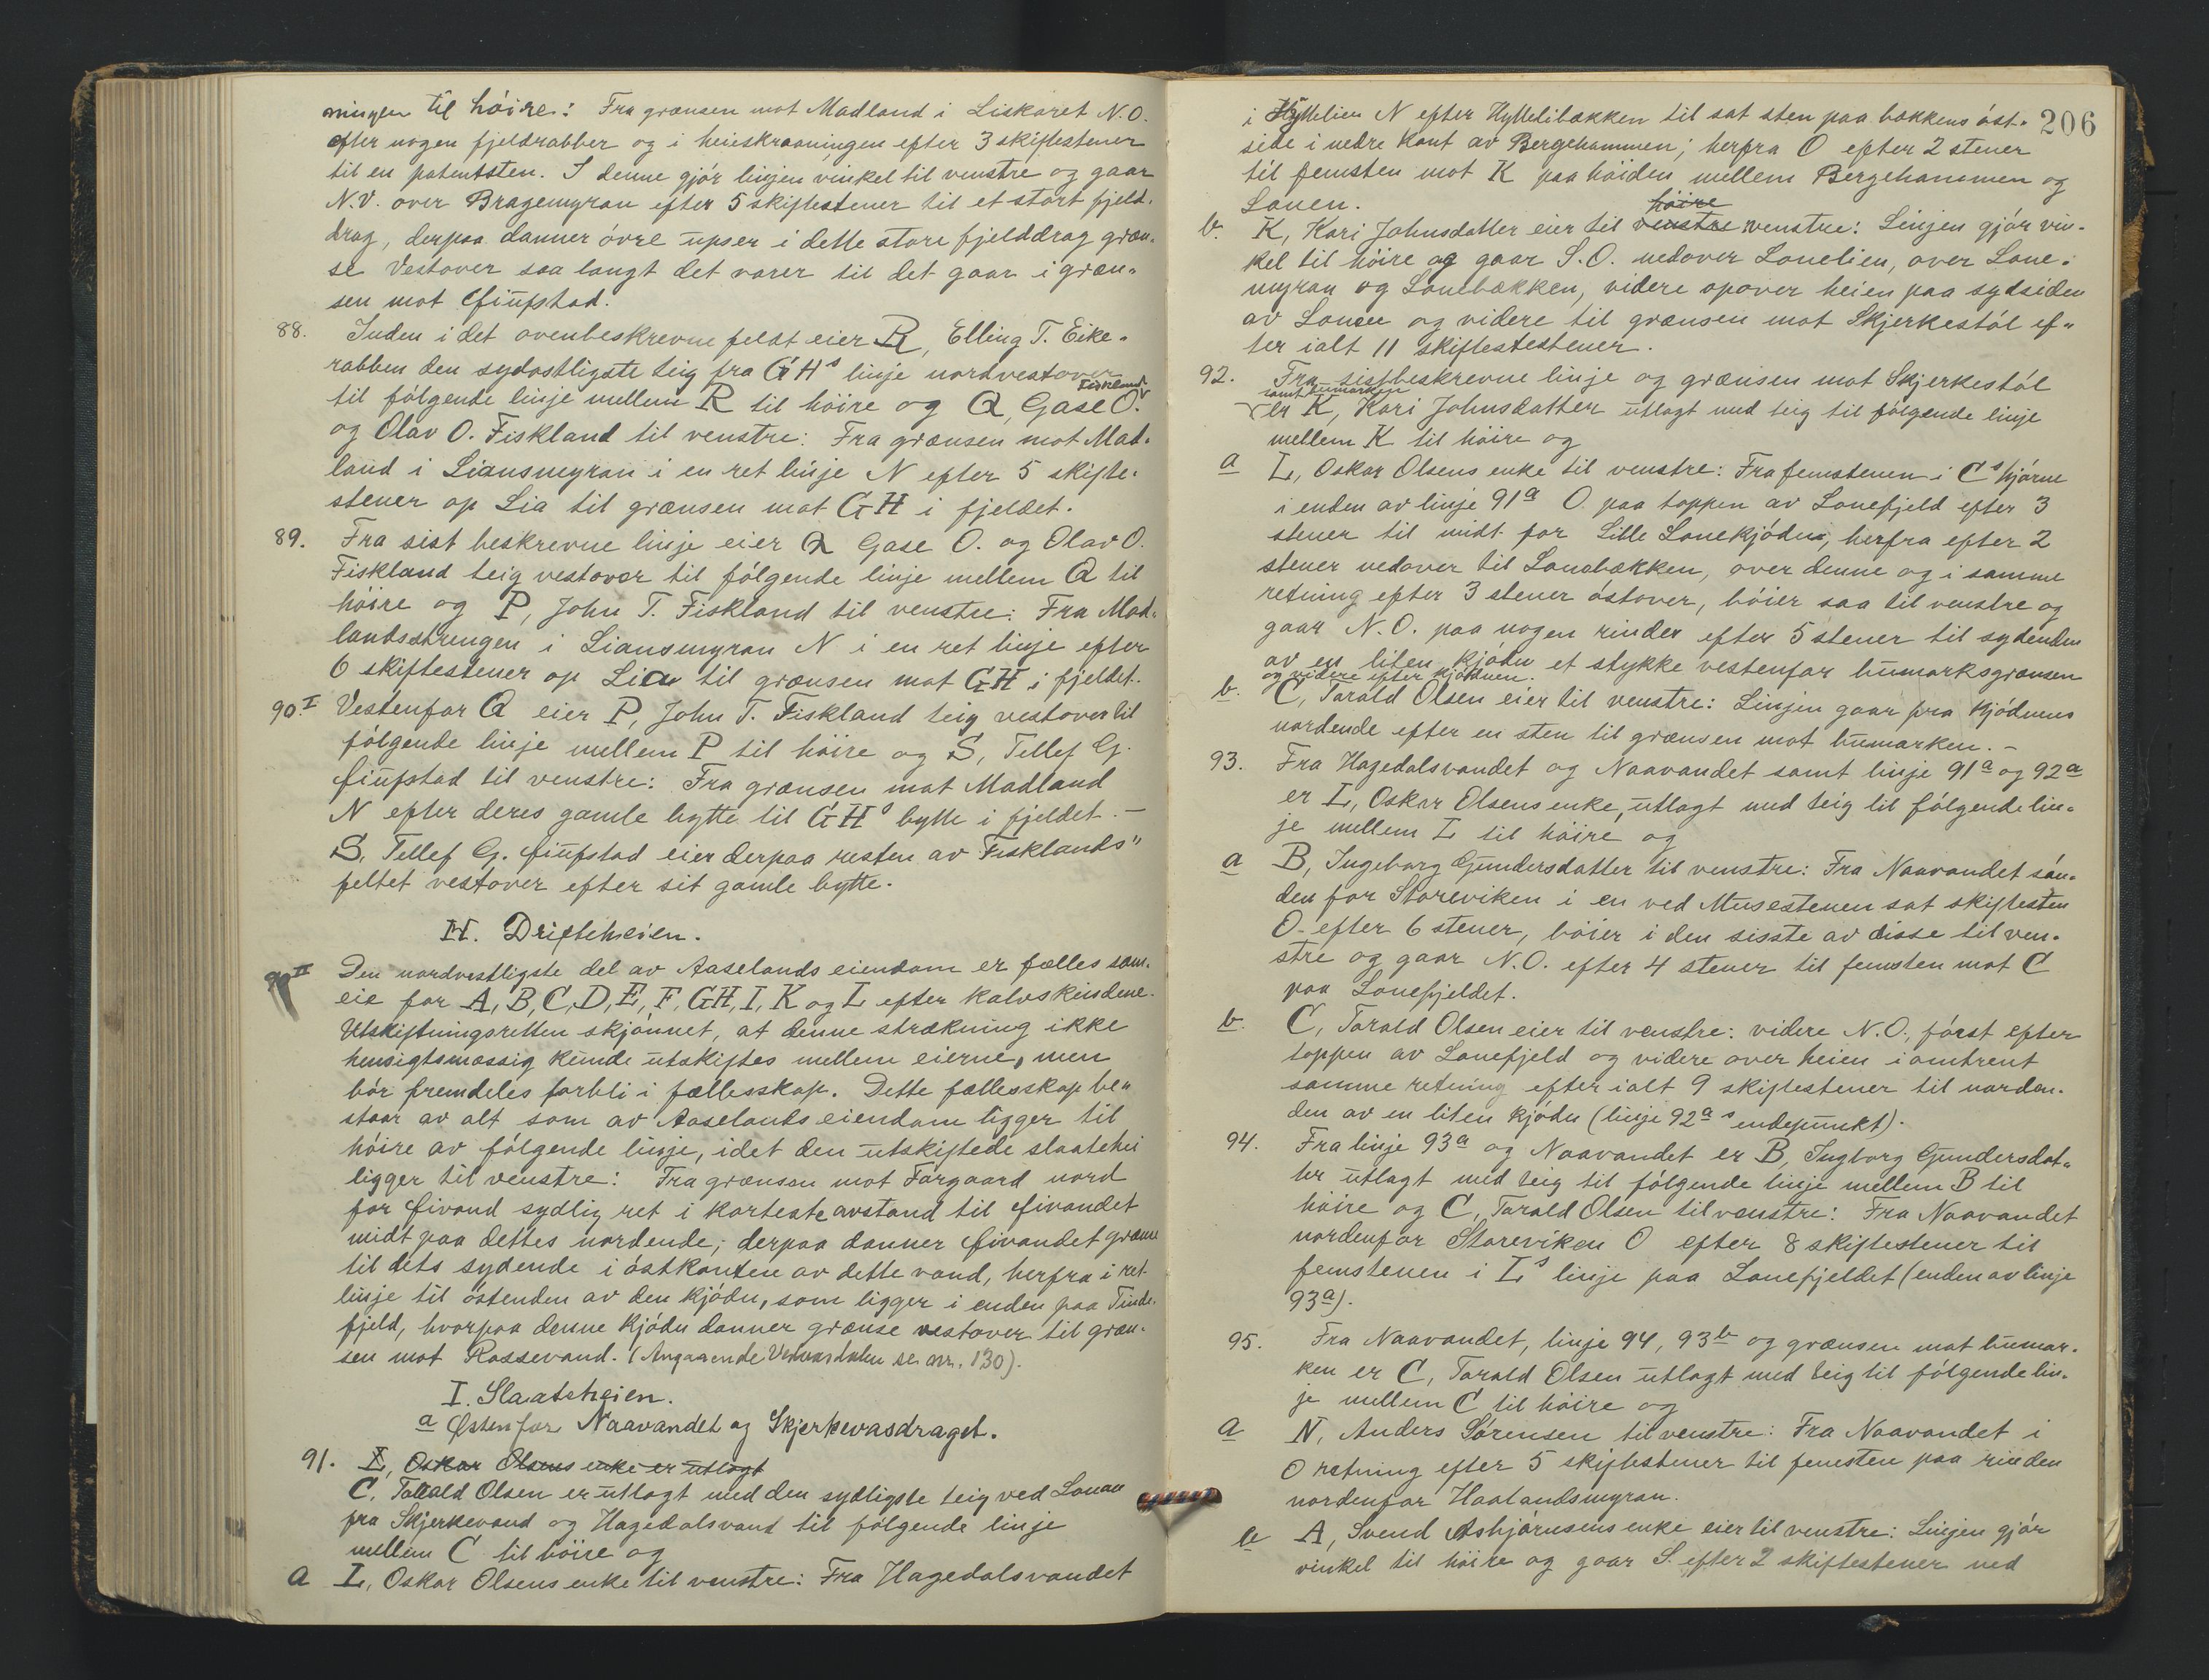 ningen til høire: Fra grænsen mot Madland i Liskaret N.O.
efter nogen fjeldrabber og i heieskraaningen efter 3 skiftestener
til en patentsten. I denne gjør linjen vinkel til venstre og gaar
N.V. over Bragemyran efter 5 skiftestener til et stort fjeld-
drag, derpaa danner øvre upser i dette store fjelddrag græn-
se vestover saa langt det varer til det gaar i græn-
sen mot Finfstad.
88. Inden i det ovenbeskrevne feldt eier R, Elling T. Eike-
rabben den sydostligste teig fra GH's linje nordvestover
til følgende linje mellem R til høire og Q, Gase O. Fiskland
og Olav O. Fiskland til venstre: Fra grænsen mot Mad-
land i Liansmyran i en ret linje N efter 5 skifte-
stener op Lia til grænsen mot GH i fjeldet.
89. Fra sist beskrevne linje eier Q Gase O. og Olav O.
Fiskland teig vestover til følgende linje mellem Q til
høire og P, John T. Fiskland til venstre: Fra Mad-
landsstrengen i Liansmyran N i en ret linje efter
6 skiftestener op Lia til grænsen mot GH i fjeldet.
90.I Vestenfor Q eier P, John T. Fiskland teig vestover til
følgende linje mellem P til høire og S, Tellef G.
Finfstad til venstre: Fra grænsen mot Madland
N efter deres gamle bytte til GH's bytte i fjeldet. –
S, Tellef G. Finfstad eier derpaa resten av Fisklands"
feltet vestover efter sit gamle bytte.
H. Drifteheien.
90 II Den nordvestligste del av Aaselands eiendom er fælles sam-
eie for A, B, C, D, E, F, GH, I, K og L efter kalvskindene.
Utskiftningsretten skjønnet, at denne strækning ikke
hensigtsmæssig kunde utskiftes mellem eierne, men
bør fremdeles forbli i fællesskap. Dette fællesskap be-
staar av alt som av Aaselands eiendom ligger til
høire av følgende linje, idet den utskiftede slaatehei
ligger til venstre: Fra grænsen mot Fargaard nord
for Fivand sydlig ret i korteste avstand til Fivandet
midt paa dettes nordende; derpaa danner Fivandet grænse
til dets sydende i østkanten av dette vand, herfra i ret
linje til østenden av den kjødn, som ligger i enden paa Tinde-
fjeld, hvorpaa denne kjødn danner grænse vestover til græn-
sen mot Rossevand. (Angaaende se nr. 130).
I. Slaateheien.
a Østenfor Naavandet og Skjerkevasdraget.
91. L, Oskar Olsens enke er utlagt
C, Tarald Olsen er utlagt med den sydligste teig ved Lonan
fra Skjerkevand og Hagedalsvand til følgende linje
mellem C til høire og
a L, Oskar Olsens enke til venstre: Fra Hagedalsvandet
206
i Hyttelien N efter Hyttelibækken til sat sten paa bækkens øst-
side i nedre kant av Bergehammen; herfra O efter 2 stener
til femsten mot K paa høiden mellem Bergehammen og
Lonen.
høire
b. K, Kari Johnsdatter eier til venstre venstre: Linjen gjør vin-
kel til høire og gaar S.O. nedover Lonelien, over Lone-
myran og Lonebækken, videre opover heien paa sydsiden
av Lonen og videre til grænsen mot Skjerkestøl ef-
ter ialt 11 skiftestestener.
92. Fra sistbeskrevne linje og grænsen mot Skjerkestøl
samt bumarken
er K, Kari Johnsdatter utlagt med teig til følgende linje
mellem K til høire og
a L, Oskar Olsens enke til venstre: Fra femstenen i C's hjørne
i enden av linje 91a O. paa toppen av Lonefjeld efter 3
stener til midt for Lille Lonekjødn, herfra efter 2
stener nedover til Lonebækken, over denne og i samme
retning efter 3 stener østover, bøier saa til venstre og
gaar N.O. paa nogen rinder efter 5 stener til sydenden
av en liten kjødn et stykke vestenfor bumarksgrænsen
og videre efter kjødnen.
b. C, Tarald Olsen eier til venstre: Linjen gaar fra kjødnens
nordende efter en sten til grænsen mot bumarken. –
93. Fra Hagedalsvandet og Naavandet samt linje 91a og 92a
er L, Oskar Olsens enke, utlagt med teig til følgende lin-
je mellem L til høire og
a B, Ingeborg Gundersdatter til venstre: Fra Naavandet søn-
den for Storeviken i en ved Musestenen sat skiftesten
O. efter 6 stener, bøier i den sisste av disse til ven-
stre og gaar N.O. efter 4 stener til femsten mot C
paa Lonefjeldet.
b. C, Tarald Olsen eier til venstre: videre N.O., først efter
toppen av Lonefjeld og videre over heien i omtrent
samme retning efter ialt 9 skiftestener til norden-
den av en liten kjødn (linje 92a's endepunkt).
94. Fra linje 93a og Naavandet er B, Ingborg Gundersdat-
ter utlagt med teig til følgende linje mellem B til
høire og C, Tarald Olsen til venstre: Fra Naavandet
nordenfor Storeviken O efter 8 skiftestener til
femstenen i L's linje paa Lonefjeldet (enden av linje
93a).
95. Fra Naavandet, linje 94, 93b og grænsen mot bumar-
ken er C, Tarald Olsen utlagt med teig til følgende lin-
je mellem C til høire og
a N, Anders Sørensen til venstre: Fra Naavandet i
O retning efter 5 skiftestener til femsten paa rinden
nordenfor Haalandsmyran.
b A, Svend Asbjørnsens enke eier til venstre: Linjen gjør
vinkel til høire og gaar S. efter 2 skiftestener ved